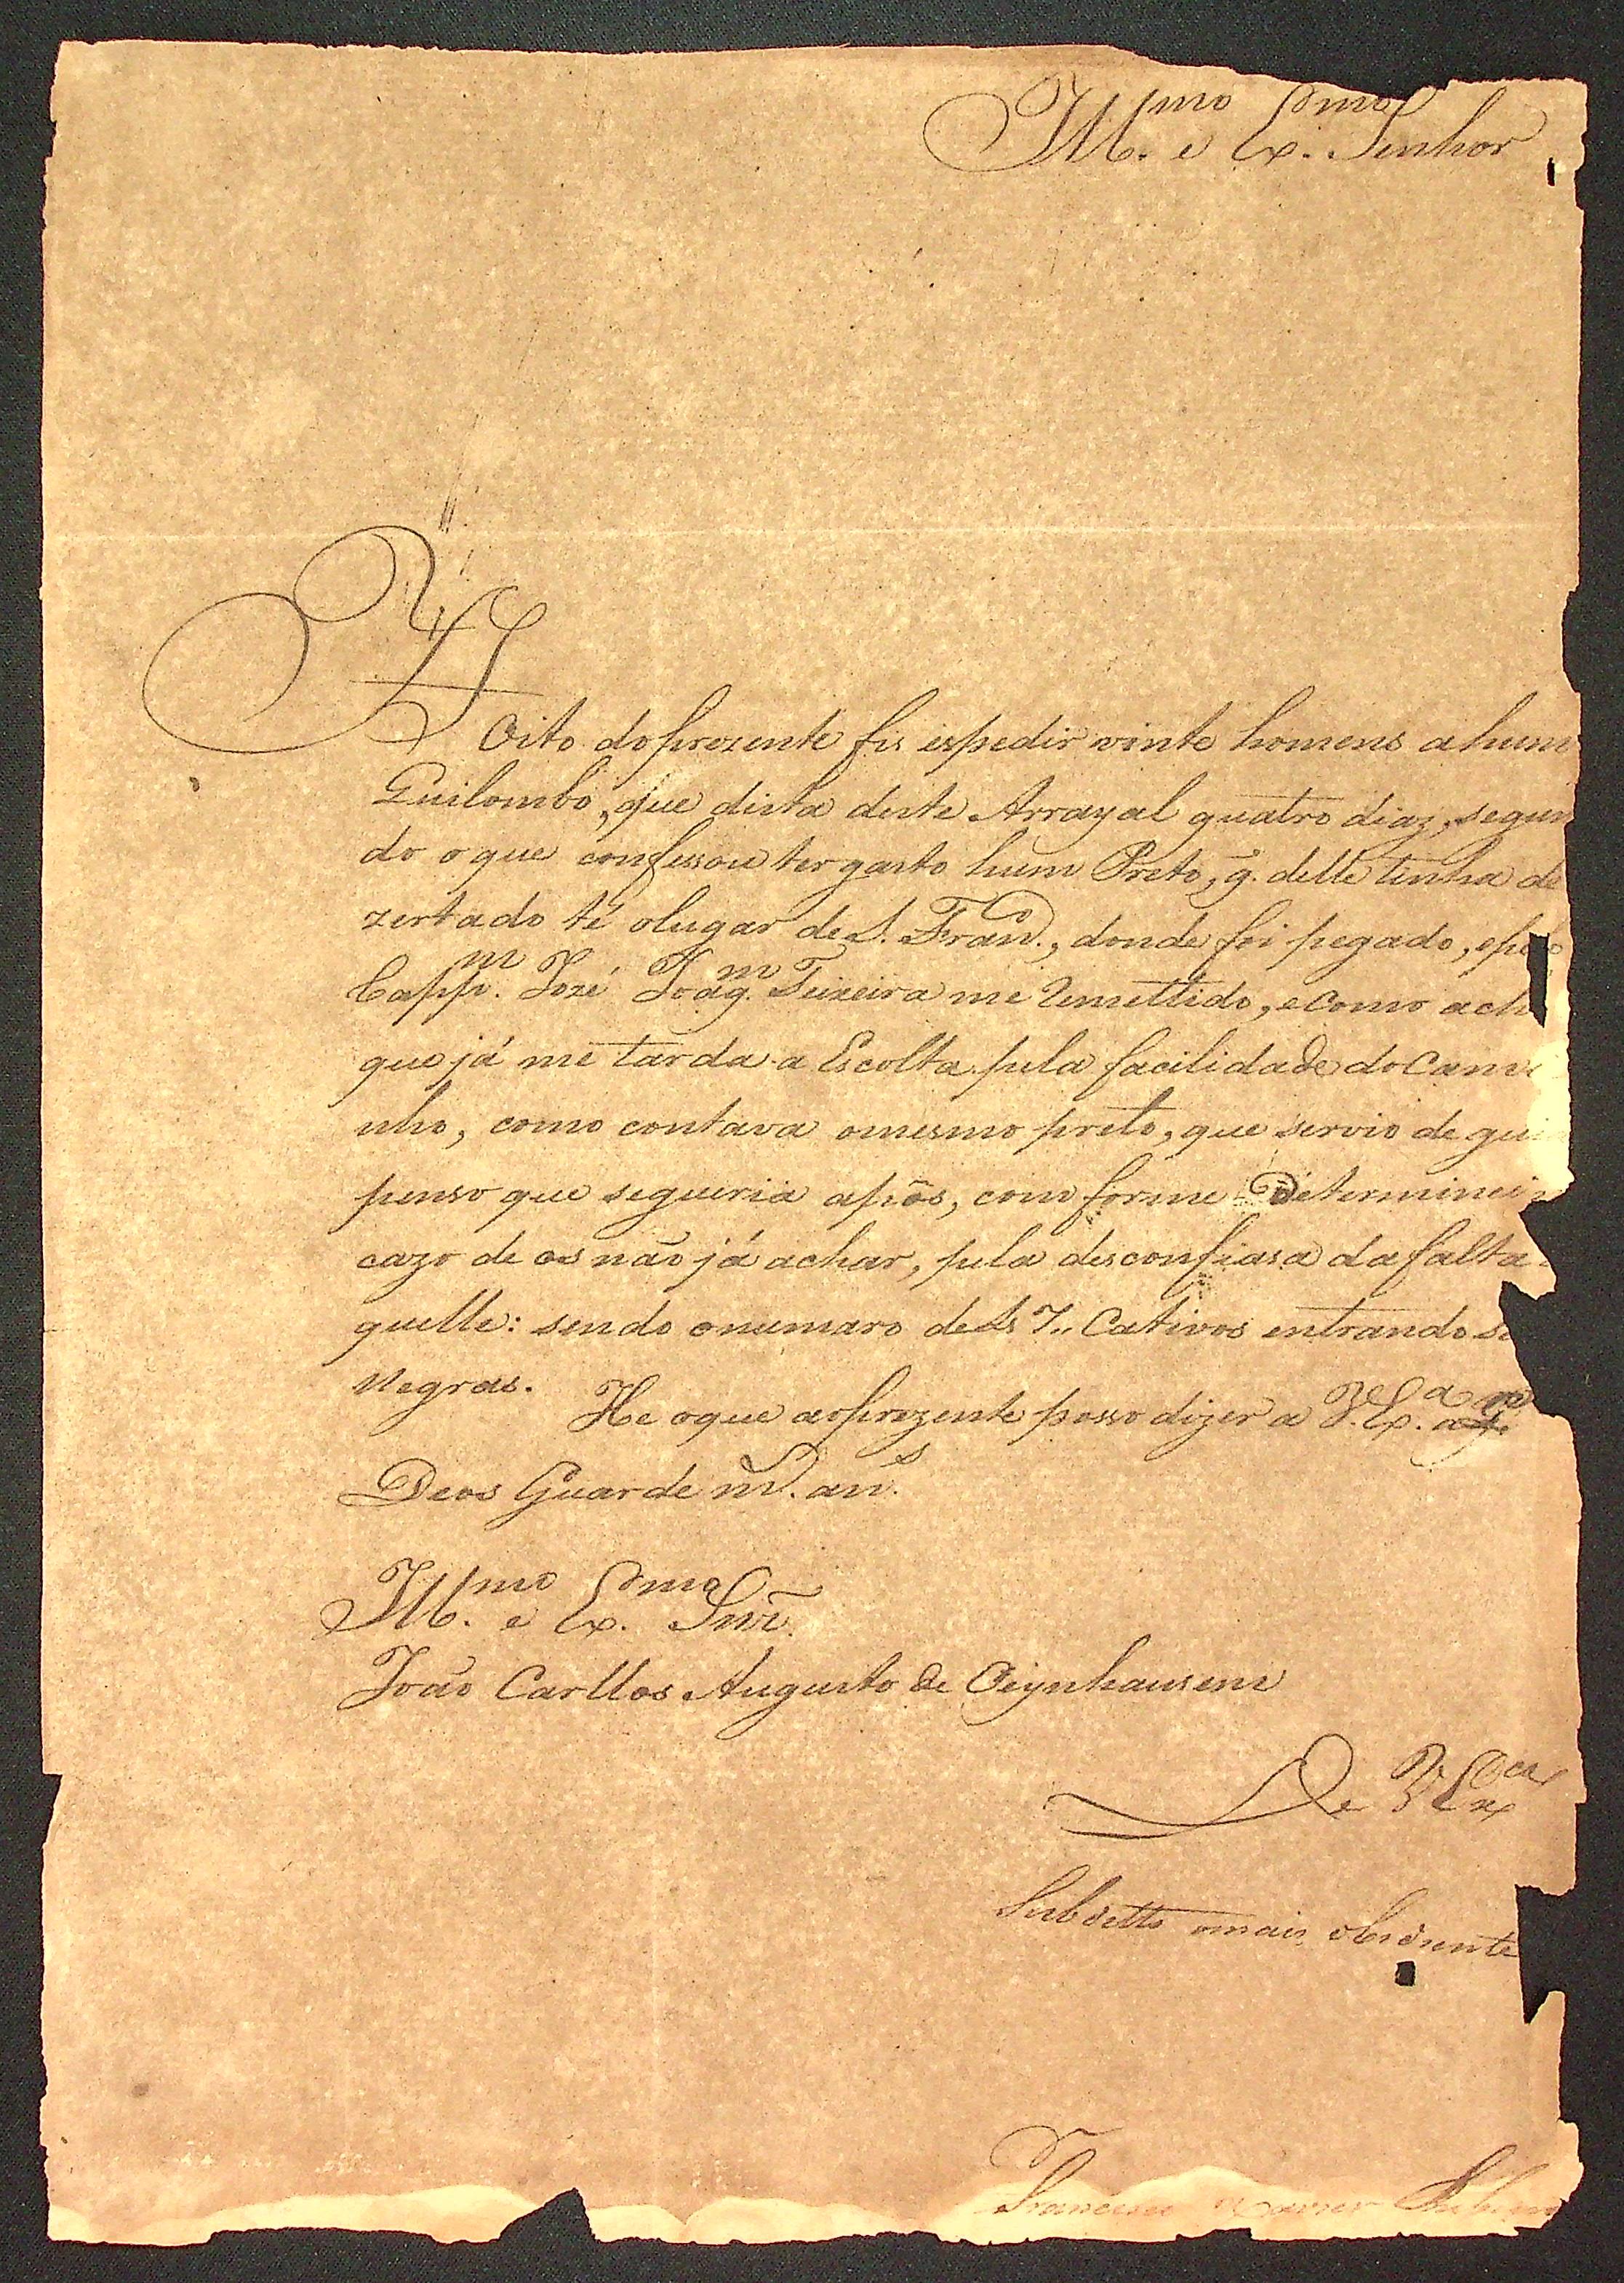 Ill.mo e Ex.mo Senhor
A
Oito do prezente fis espedir vinte homens a hum
Quilombo, que dista deste Arrayal quatro diaz, segun
do o que confessou ter gasto hum Preto, q̃. delle tinha de
zertado té o lugar de S. Fran.co, donde foi pegado, e pelo
Capp.m Jozé Joaq.m Teixeira me remettido, e como ach
que já me tarda a Escolta pela facilidade do Cami
nho, como contava o mesmo preto, que servio de gui
penso que seguiria apôs, com forme Determinei
cazo de os não já achar, pela desconfiasa da falta
quelle: sendo o numaro de Cativos entrando
Negras. He o que ao prezente posso dizer a V. Ex.a
Deos Guarde m.s an.s
Ill.mo e Ex.mo Snr̃.
João Carllos Augusto de Oeynhausem
De V Ex.ca
Subdetto o mais obediente
Francisco Xavier